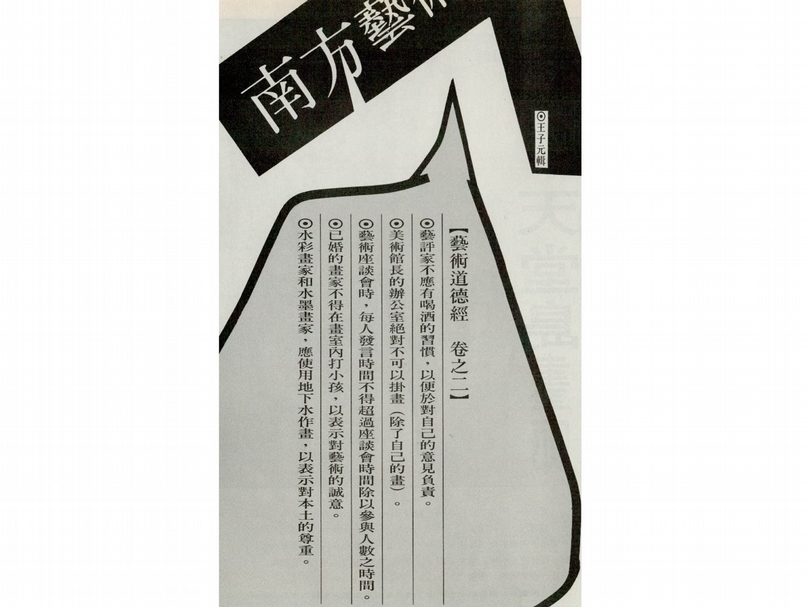 南方藝術
◉王子元輯
【藝術道德經　卷之二】
◉藝評家不應有喝酒的習慣，以便於對自己的意見負責。
◉美術館長的辦公室絕對不可以掛畫（除了自己的畫）。
◉藝術座談會時，每人發言時間不得超過座談會時間除以參與人數之時間。
◉已婚的畫家不得在畫室內打小孩，以表示對藝術的誠意。
◉水彩畫家和水墨畫家，應使用地下水作畫，以表示對本土的尊重。